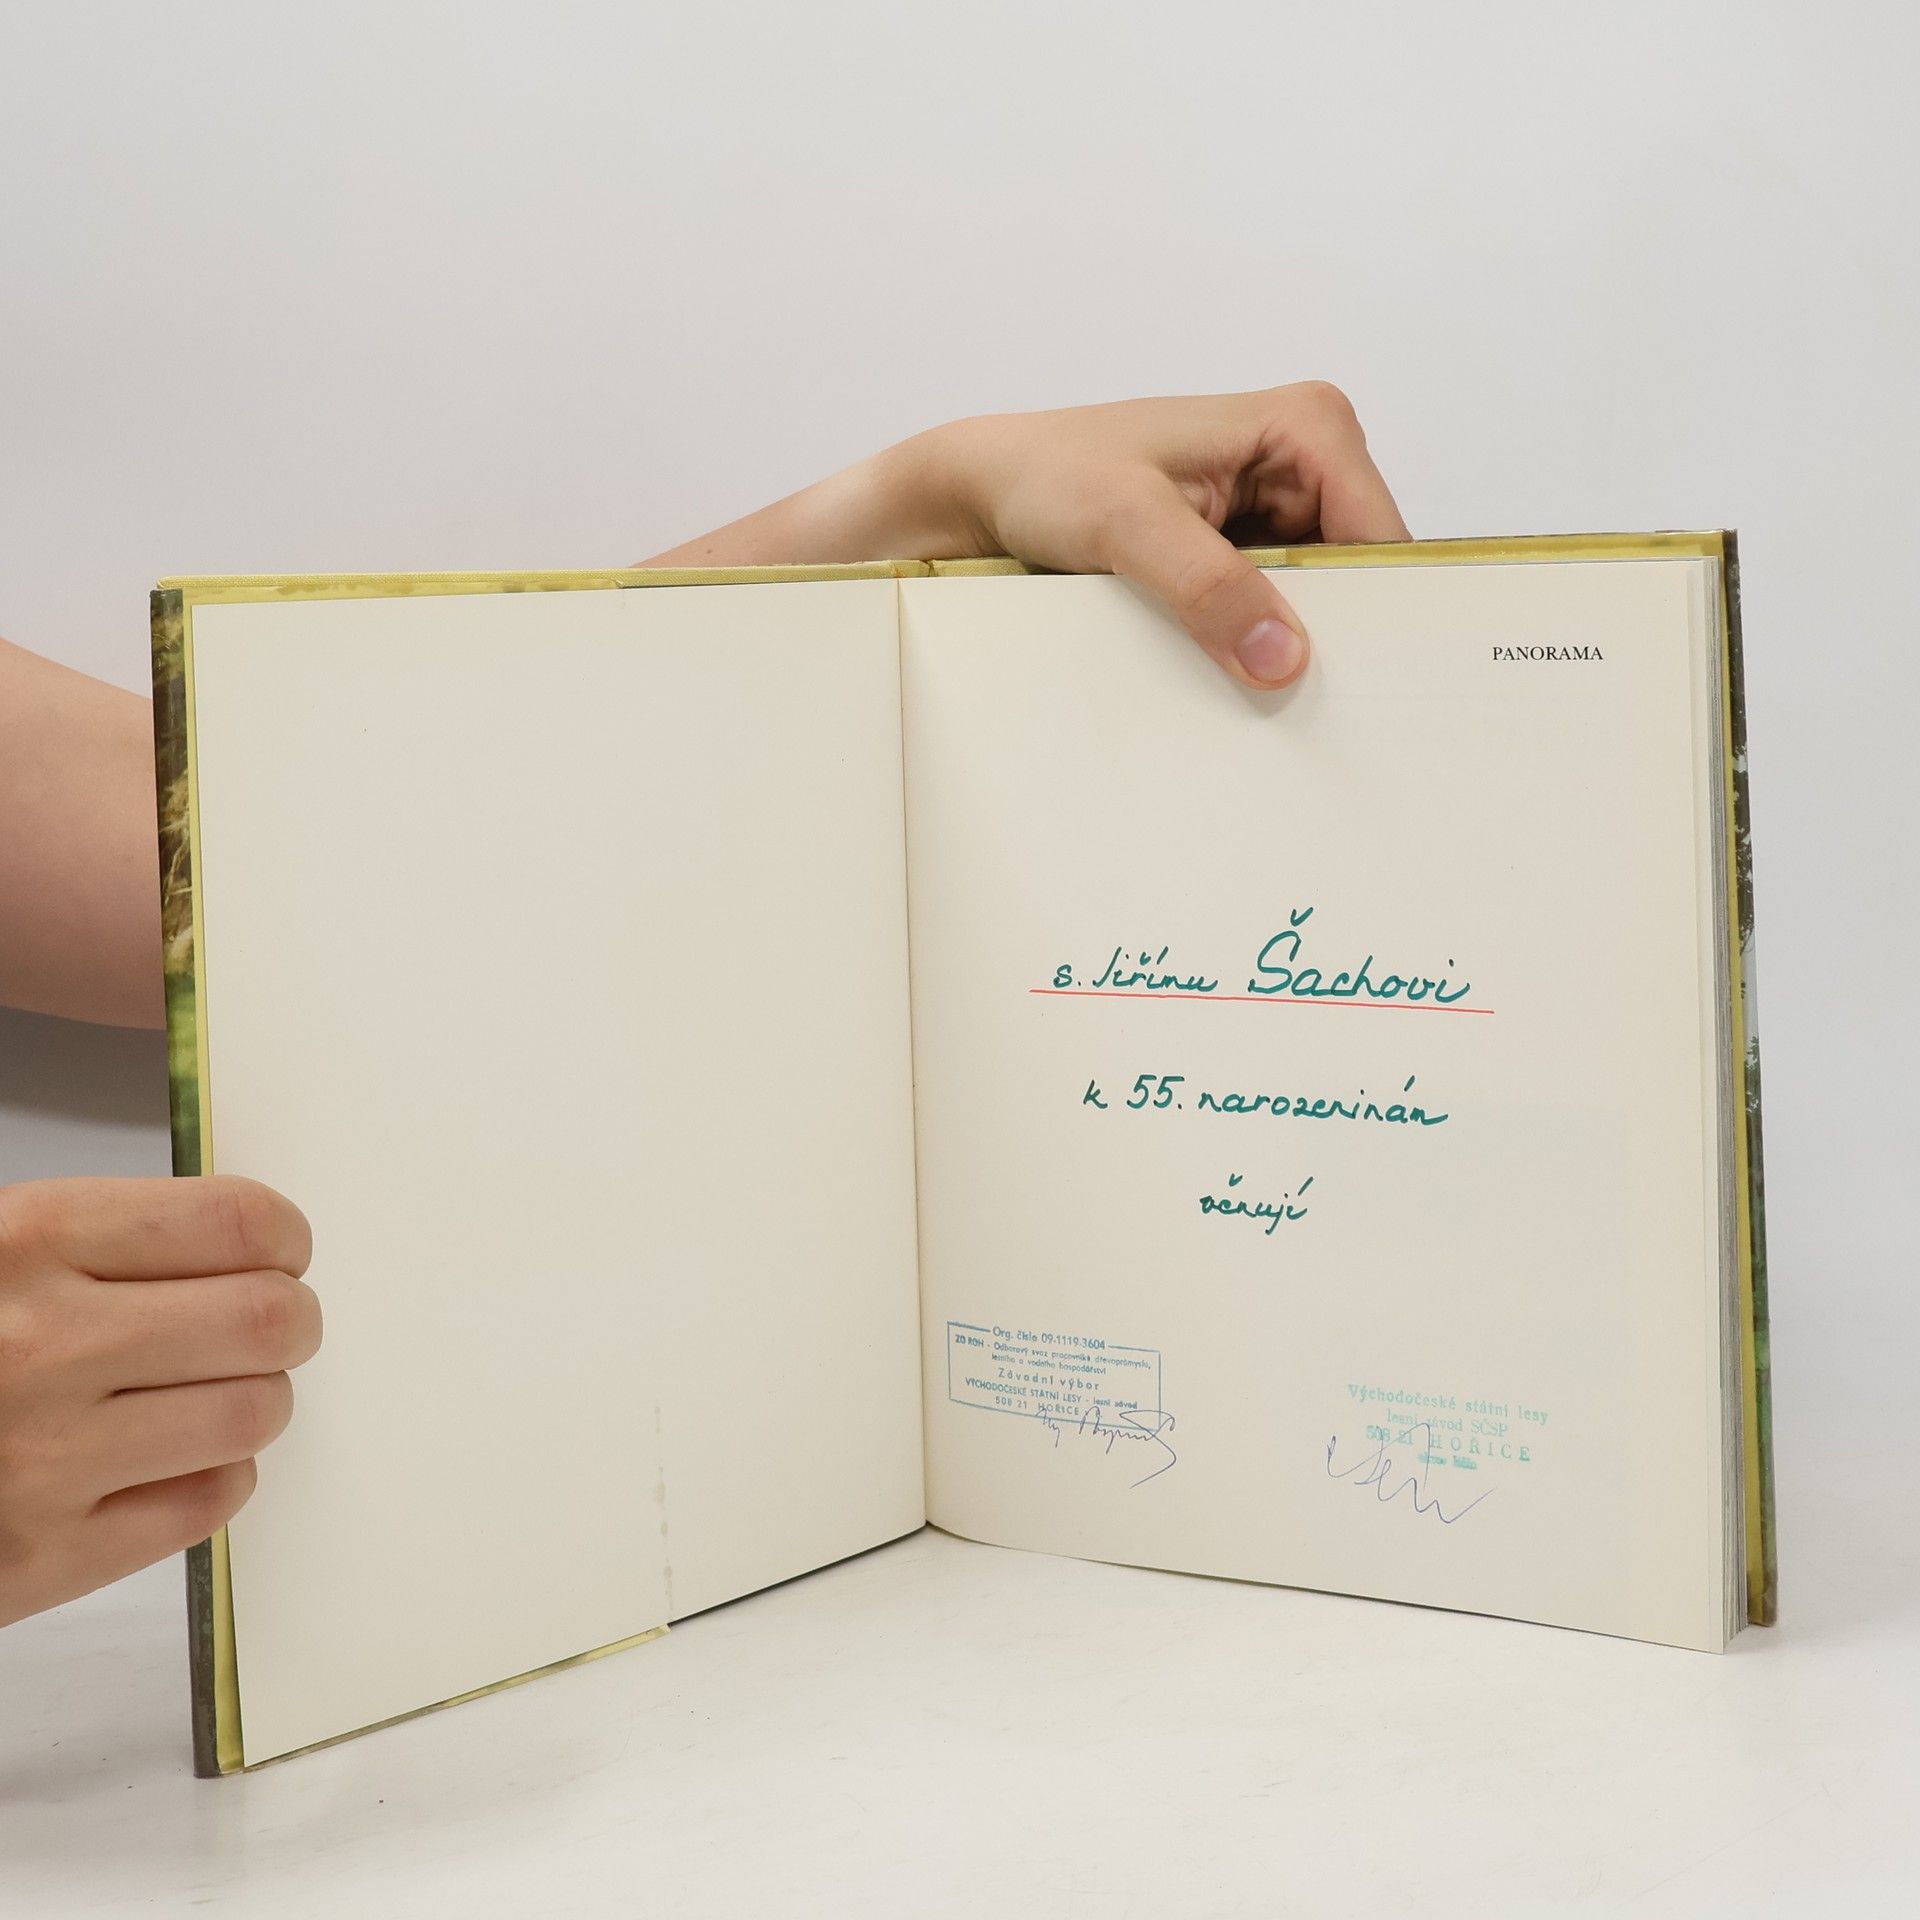 PANORAMA
s. Jiřímu Šachovi
k 55. narozeninám
věnují
Org. číslo 09-1119-3604
ZO ROH - Odborový svaz pracovníků dřevoprůmyslu,
lesního a vodního hospodářství
Závodní výbor
VÝCHODOČESKÉ STÁTNÍ LESY - lesní závod
508 21 HOŘICE
Východočeské státní lesy
lesní závod SČSP
508 21 HOŘICE